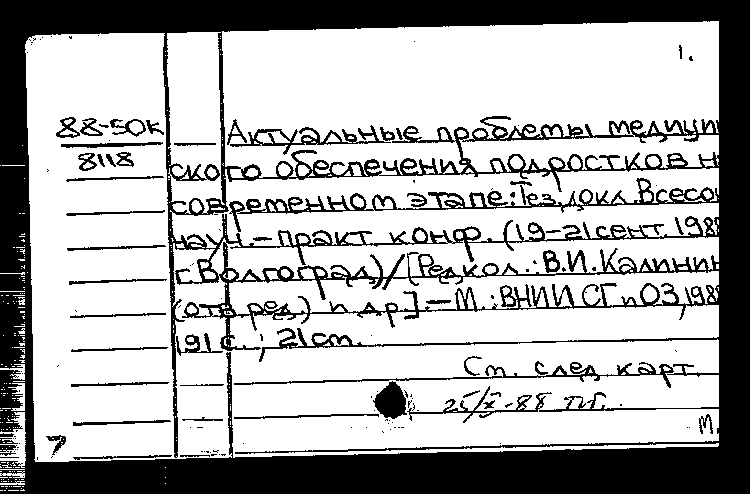 1.
88-50к
8118
Актуальные проблемы медицин
ского обеспечения подростков н
современном этапе: Тез. докл. Всесою
науч.-практ. конф. (19-21 сент. 1988
г. Волгоград) / [Редкол.: В.И. Калинин
(отв. ред.) и др.]. - М.: ВНИИ СГ и ОЗ, 1988
191 с.; 21 см.
См. след. карт.
25/X-88
М.
7